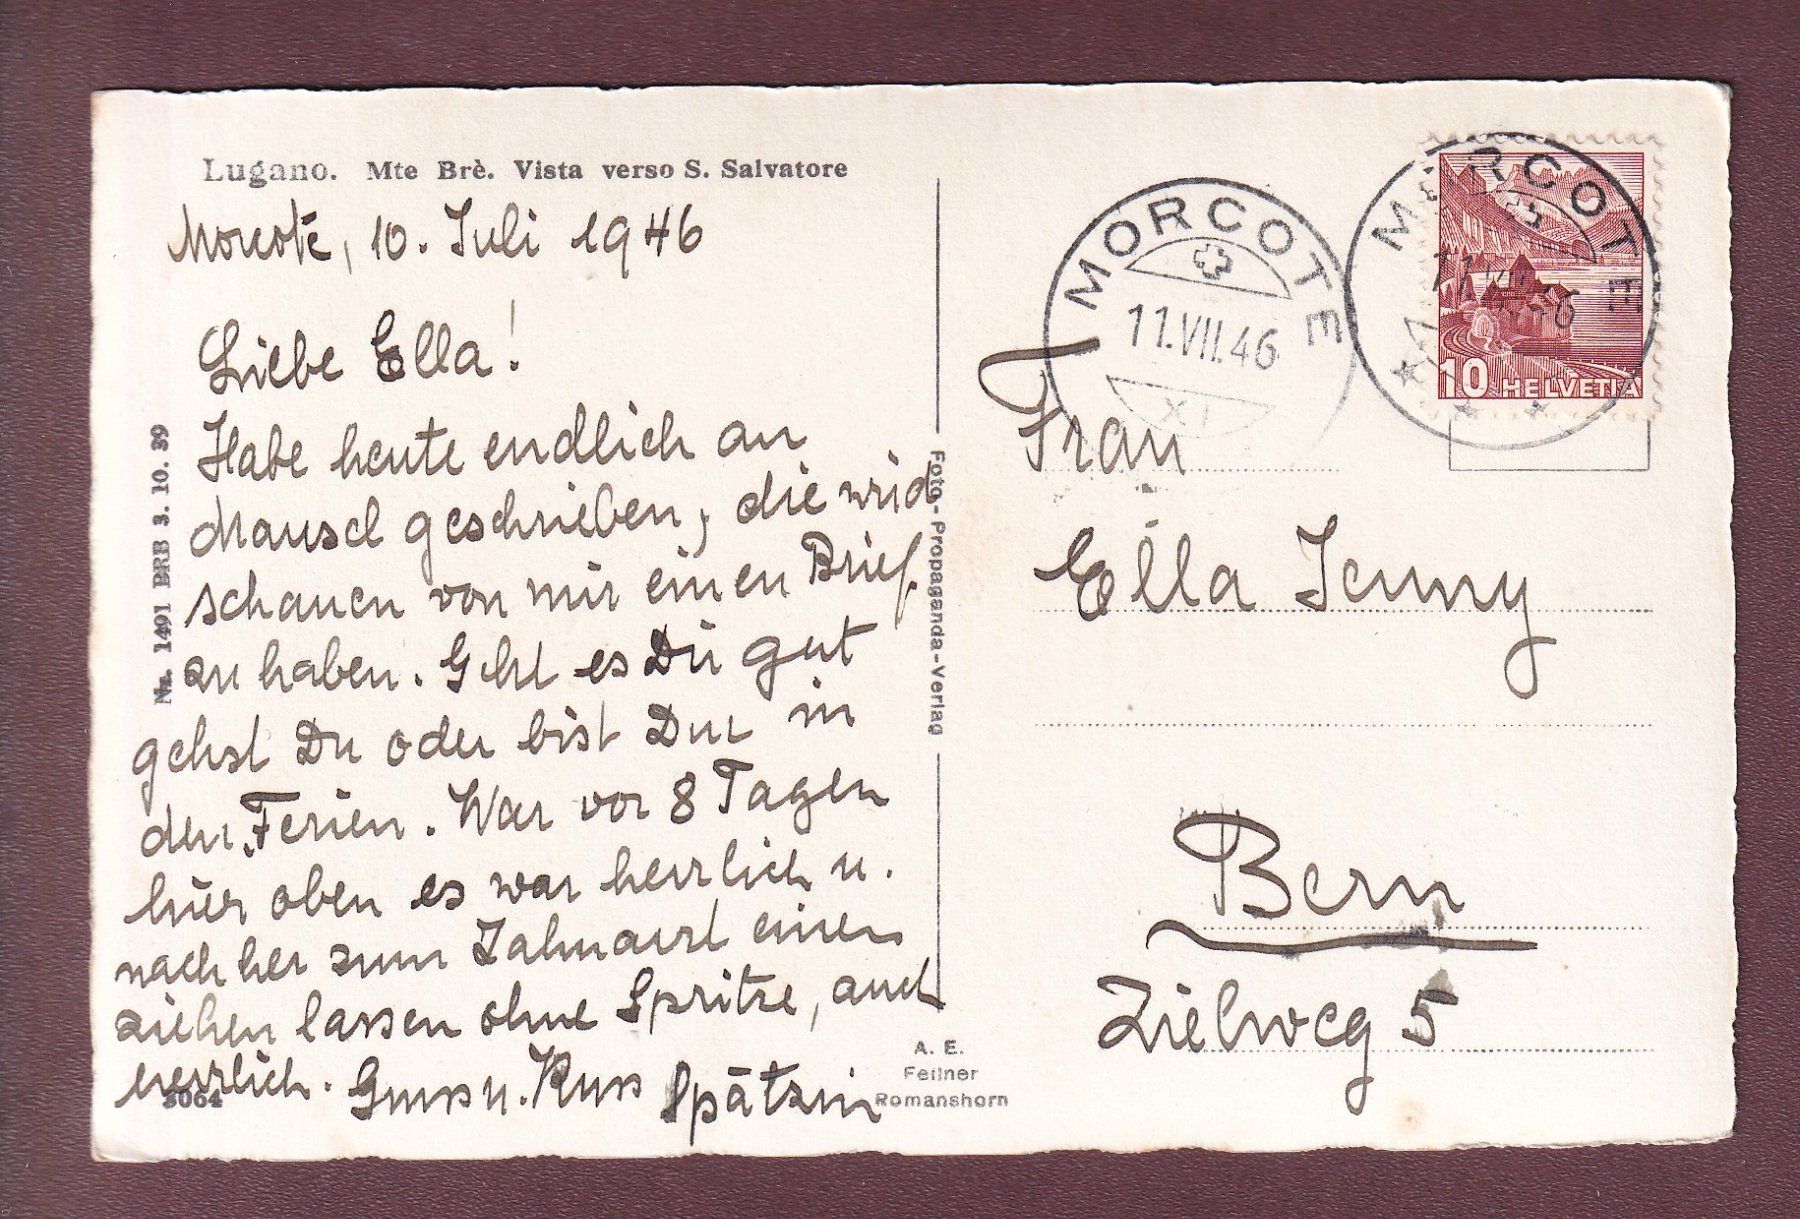 Lugano. Mte Brè. Vista verso S. Salvatore
Morcote, 10. Juli 1946
Liebe Ella!
Habe heute endlich an
Mausel geschrieben, die wird
schauen von mir einen Brief
zu haben. Geht es Dir gut
gehst Du oder bist Du in
den Ferien. War vor 8 Tagen
hier oben es war herrlich u.
nachher zum Zahnarzt einen
ziehen lassen ohne Spritze, auch
herrlich. Gruss u. Kuss Spätzin
3064
Nr. 1491 BRB 3. 10. 39
Foto-Propaganda-Verlag
A. E.
Feilner
Romanshorn
MORCOTE
11.VII.46
XI
MORCOTE
11.VII.46
10 HELVETIA
Frau
Ella Jenny
Bern
Zielweg 5